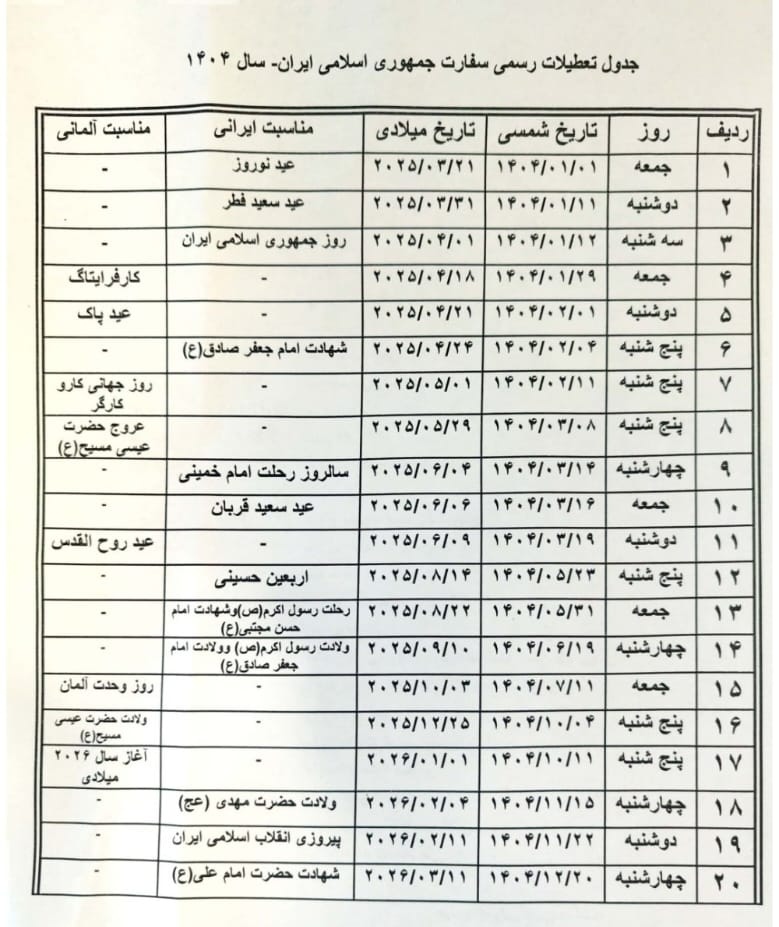 جدول تعطیلات رسمی سفارت جمهوری اسلامی ایران- سال ۱۴۰۴
ردیف روز تاریخ شمسی تاریخ میلادی مناسبت ایرانی مناسبت آلمانی
۱ جمعه ۱۴۰۴/۰۱/۰۱ ۲۰۲۵/۰۳/۲۱ عید نوروز -
۲ دوشنبه ۱۴۰۴/۰۱/۱۱ ۲۰۲۵/۰۳/۳۱ عید سعید فطر -
۳ سه شنبه ۱۴۰۴/۰۱/۱۲ ۲۰۲۵/۰۴/۰۱ روز جمهوری اسلامی ایران -
۴ جمعه ۱۴۰۴/۰۱/۲۹ ۲۰۲۵/۰۴/۱۸ - کارفرایتاگ
۵ دوشنبه ۱۴۰۴/۰۲/۰۱ ۲۰۲۵/۰۴/۲۱ - عید پاک
۶ پنج شنبه ۱۴۰۴/۰۲/۰۴ ۲۰۲۵/۰۴/۲۴ شهادت امام جعفر صادق(ع) -
۷ پنج شنبه ۱۴۰۴/۰۲/۱۱ ۲۰۲۵/۰۵/۰۱ - روز جهانی کارو
کارگر
۸ پنج شنبه ۱۴۰۴/۰۳/۰۸ ۲۰۲۵/۰۵/۲۹ - عروج حضرت
عیسی مسیح(ع)
۹ چهارشنبه ۱۴۰۴/۰۳/۱۴ ۲۰۲۵/۰۶/۰۴ سالروز رحلت امام خمینی -
۱۰ جمعه ۱۴۰۴/۰۳/۱۶ ۲۰۲۵/۰۶/۰۶ عید سعید قربان -
۱۱ دوشنبه ۱۴۰۴/۰۳/۱۹ ۲۰۲۵/۰۶/۰۹ - عید روح القدس
۱۲ پنج شنبه ۱۴۰۴/۰۵/۲۳ ۲۰۲۵/۰۸/۱۴ اربعین حسینی -
۱۳ جمعه ۱۴۰۴/۰۵/۳۱ ۲۰۲۵/۰۸/۲۲ رحلت رسول اکرم(ص)وشهادت امام
حسن مجتبی(ع) -
۱۴ چهارشنبه ۱۴۰۴/۰۶/۱۹ ۲۰۲۵/۰۹/۱۰ ولادت رسول اکرم(ص) وولادت امام
جعفر صادق(ع) -
۱۵ جمعه ۱۴۰۴/۰۷/۱۱ ۲۰۲۵/۱۰/۰۳ - روز وحدت آلمان
۱۶ پنج شنبه ۱۴۰۴/۱۰/۰۴ ۲۰۲۵/۱۲/۲۵ - ولادت حضرت عیسی
مسیح(ع)
۱۷ پنج شنبه ۱۴۰۴/۱۰/۱۱ ۲۰۲۶/۰۱/۰۱ - آغاز سال ۲۰۲۶
میلادی
۱۸ چهارشنبه ۱۴۰۴/۱۱/۱۵ ۲۰۲۶/۰۲/۰۴ ولادت حضرت مهدی (عج) -
۱۹ دوشنبه ۱۴۰۴/۱۱/۲۲ ۲۰۲۶/۰۲/۱۱ پیروزی انقلاب اسلامی ایران -
۲۰ چهارشنبه ۱۴۰۴/۱۲/۲۰ ۲۰۲۶/۰۳/۱۱ شهادت حضرت امام علی(ع) -